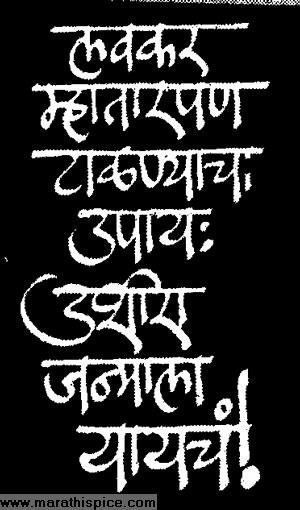 लवकर
म्हातारपण
टाळण्याचा
उपाय:
उशीरा
जन्माला
यायचं!
www.marathispice.com